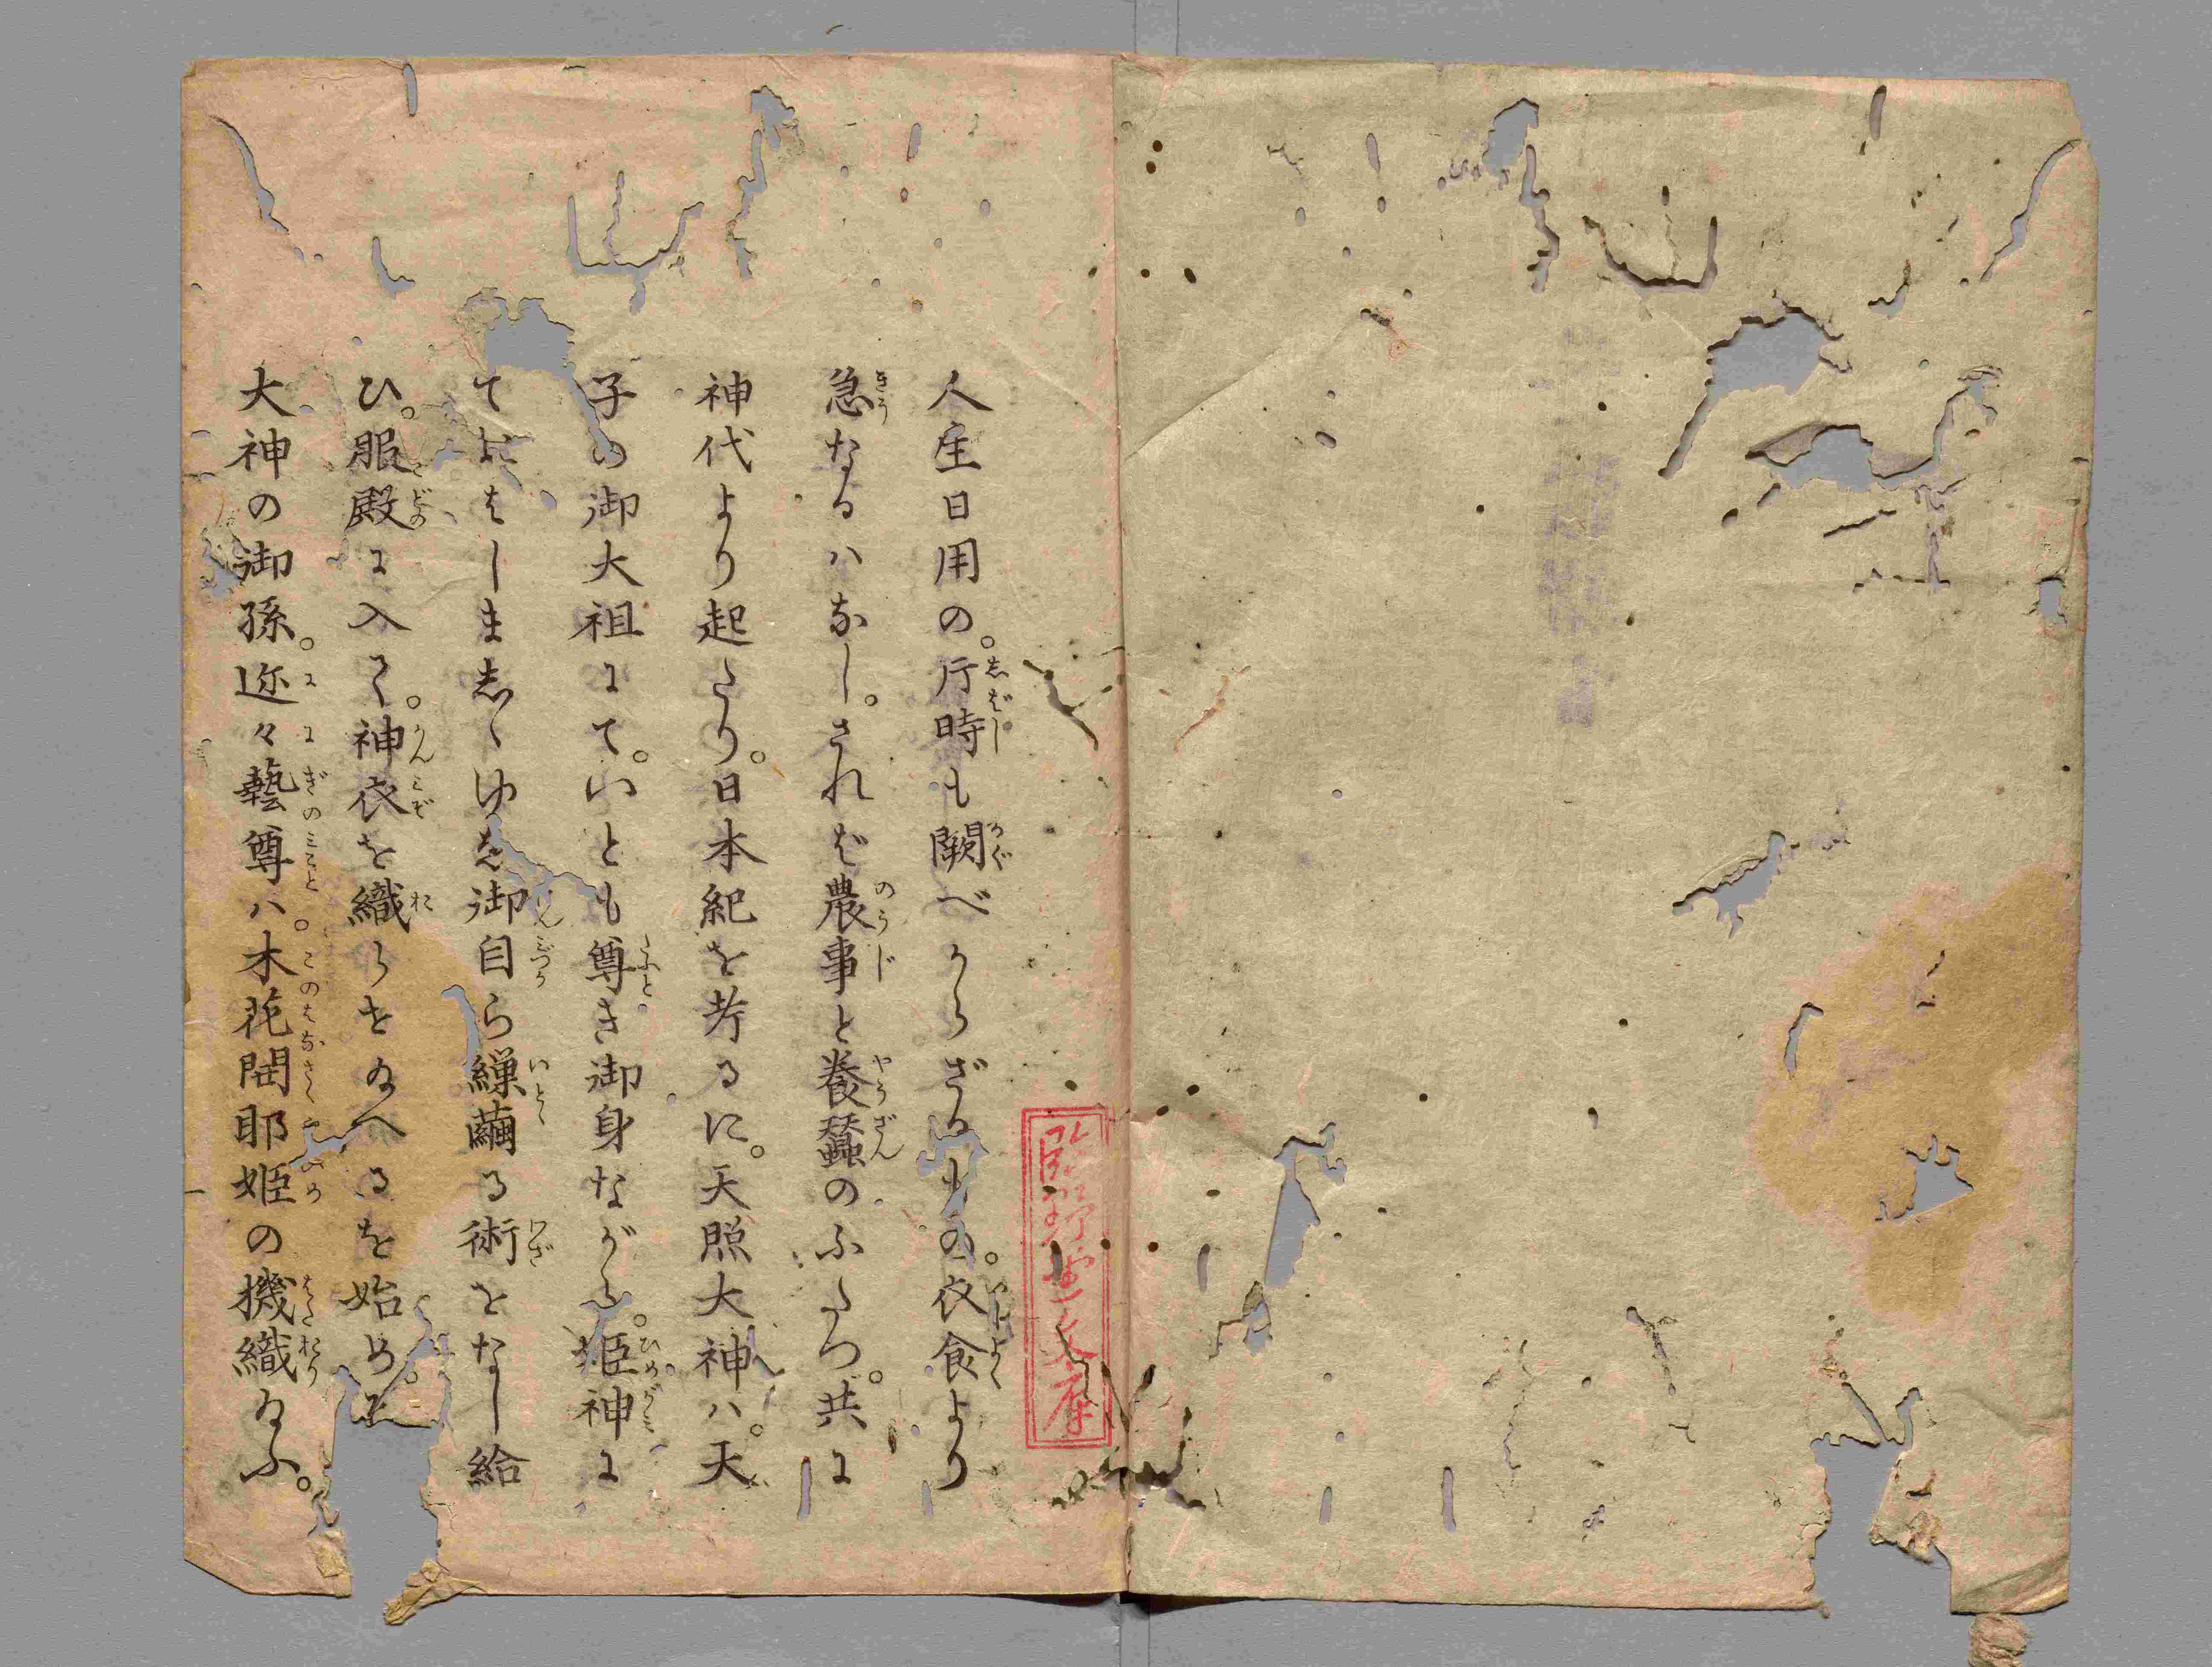 人産日用の。行時も闕べからざるもの。衣食より
急なるハなし。されば農事と養蠶のふたつ。共に
神代より起たり。日本紀を考るに。天照大神ハ。天
子の御大祖にて。いとも尊き御身ながら。姫神に
てはしましゝゆゑ御自ら繰繭る術をなし給
ひ。服殿に入て。神衣を織らせ給へるを始め。
大神の御孫。迩々藝尊ハ。木花開耶姫の機織給ふ。